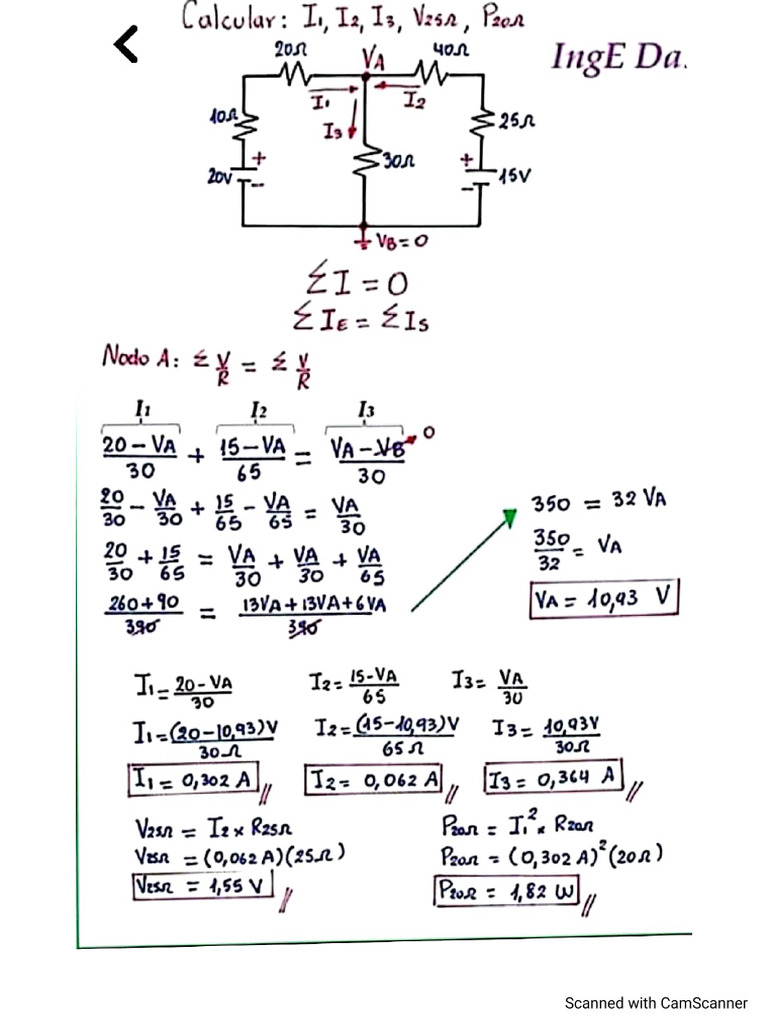 Calcular: I₁, I₂, I₃, V25Ω, P20Ω
IngE Da.
20Ω VA 40Ω
I₁ I₂
10Ω I₃ 25Ω
+ 30Ω +
20V - - 15V
VB=0
ΣI = 0
ΣIE = ΣIS
Nodo A: Σ V/R = Σ V/R
I₁ I₂ I₃
(20-VA)/30 + (15-VA)/65 = (VA-VB)/30 0
20/30 - VA/30 + 15/65 - VA/65 = VA/30
20/30 + 15/65 = VA/30 + VA/30 + VA/65
(260+90)/390 = (13VA+13VA+6VA)/390
350 = 32 VA
350/32 = VA
VA = 10,93 V
I₁ = (20-VA)/30 I₂ = (15-VA)/65 I₃ = VA/30
I₁ = (20-10,93)V/30Ω I₂ = (15-10,93)V/65Ω I₃ = 10,93V/30Ω
I₁ = 0,302 A // I₂ = 0,062 A // I₃ = 0,364 A //
V25Ω = I₂ x R25Ω P20Ω = I₁² x R20Ω
V25Ω = (0,062 A)(25Ω) P20Ω = (0,302 A)²(20Ω)
V25Ω = 1,55 V // P20Ω = 1,82 W //
Scanned with CamScanner